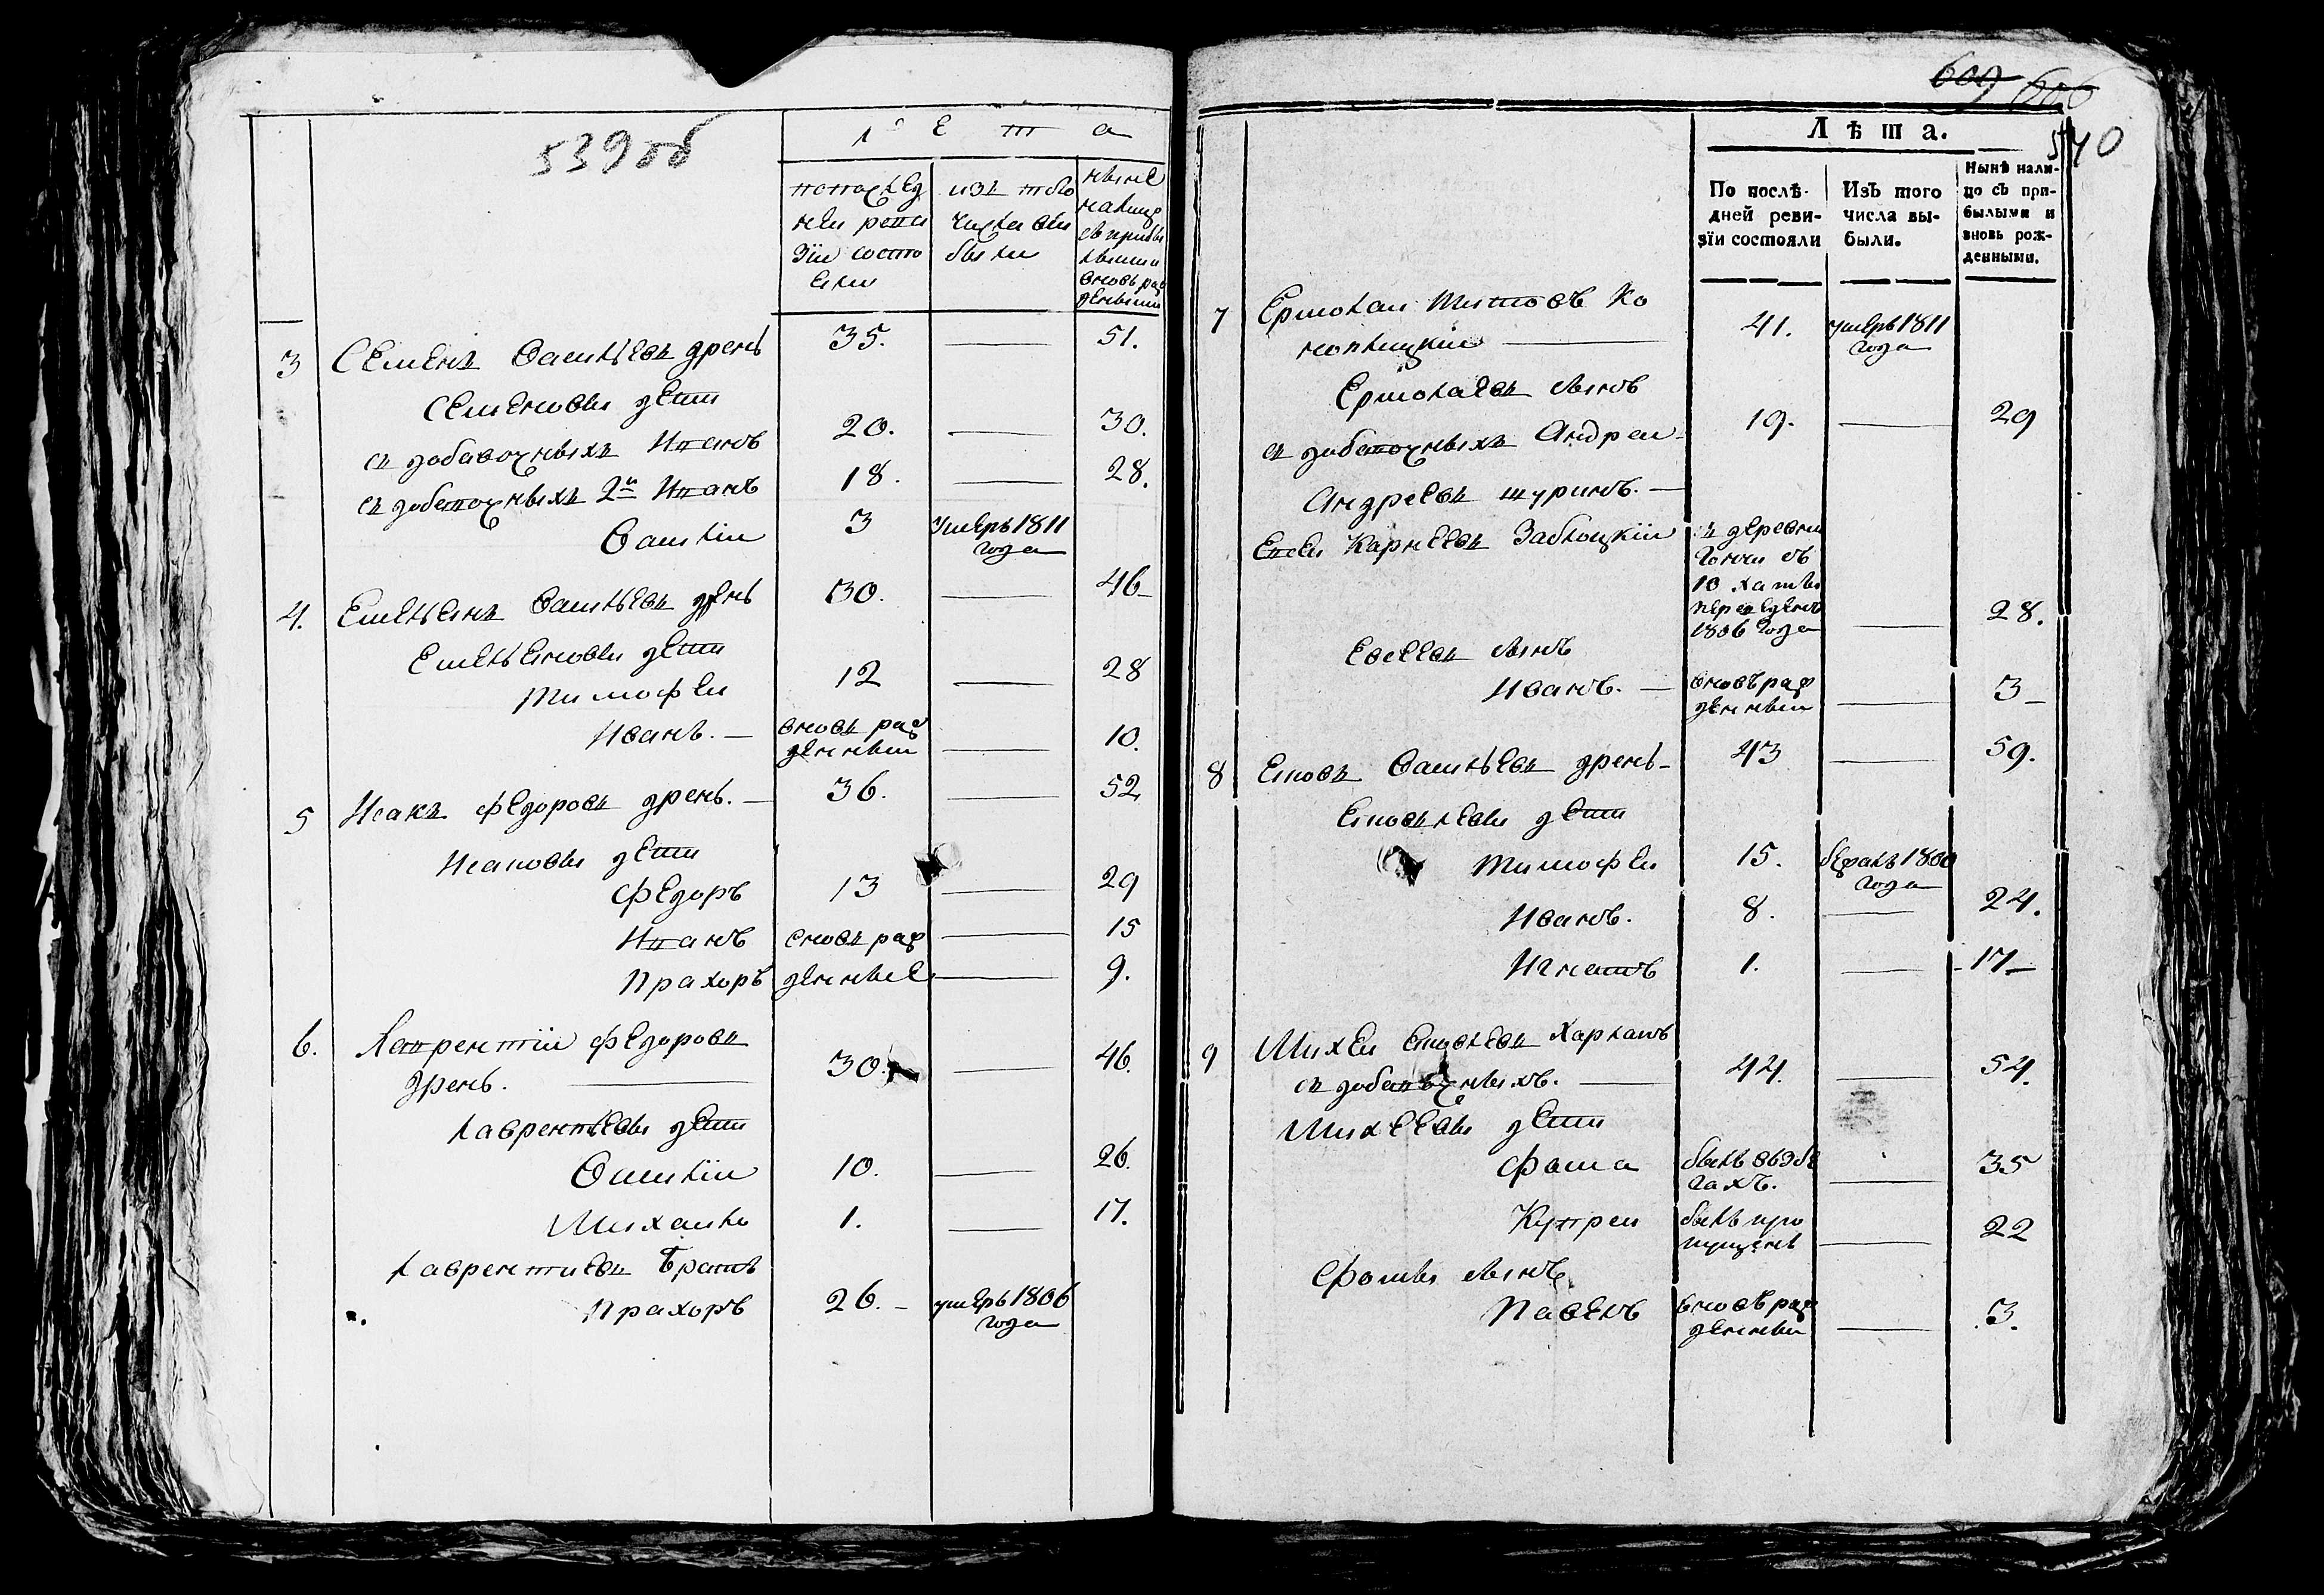 539об
Лета
попослед
ней реви
зiи состо
яли
изъ того
числа вы
были
ныне
налицо
съ прибы
лыми и
вновь раж
денными
3 Семенъ Васильевъ дрень 35. 51.
Семеновы дети
съ добавочныхъ Иванъ 20. 30.
съ добавочныхъ 2й Иванъ 18. 28.
Василiй 3 умеръ 1811
года
4. Емельянъ Васильевъ дрень 30. 46
Емельяновы дети
Тимофей 12 28
Иванъ. вновь раж
денный 10.
5 Исакъ Федоровъ дрень. 36. 52
Исаковы дети
Федоръ 13 29
Иванъ вновь раж 15
Прахоръ денные 9.
6. Лаврентiй Федоровъ
дрень. 30. 46.
Лаврентьевы дети
Василiй 10. 26.
Михайло 1. 17.
Лаврентиевъ братъ
Прахоръ 26. умеръ 1806
года
609 606
540
Лѣта.
По послѣ-
дней реви-
зїи состояли
Изъ того
числа вы-
были.
Нынѣ нали-
цо съ при-
былыми и
вновь рож-
денными.
7 Ермолай Титовъ Ко
ноплицкiй 41. умеръ 1811
года
Ермолаевъ сынъ
съ добавочныхъ Андрей 19. 29
Андреевъ шуринъ.
Евсей Карнеевъ Заблоцкiй з деревни
съ
10 хаты
переведенъ
1806 года 28.
Евсеевъ сынъ
Иванъ. вновь раж
денный 3
8 Яковъ Васильевъ дрень 43 59.
Яковлевы дети
Тимофей 15. бежалъ 1800
года
Иванъ. 8. 24.
Игнатъ 1. 17
9 Михей Яковлевъ Харланъ
съ добавочныхъ. 44. 54.
Михеевы дети
Фома былъ в бе
гахъ. 35
Купрей былъ про
пущенъ 22
Фомы сынъ
Павелъ вновь раж
денный 3.